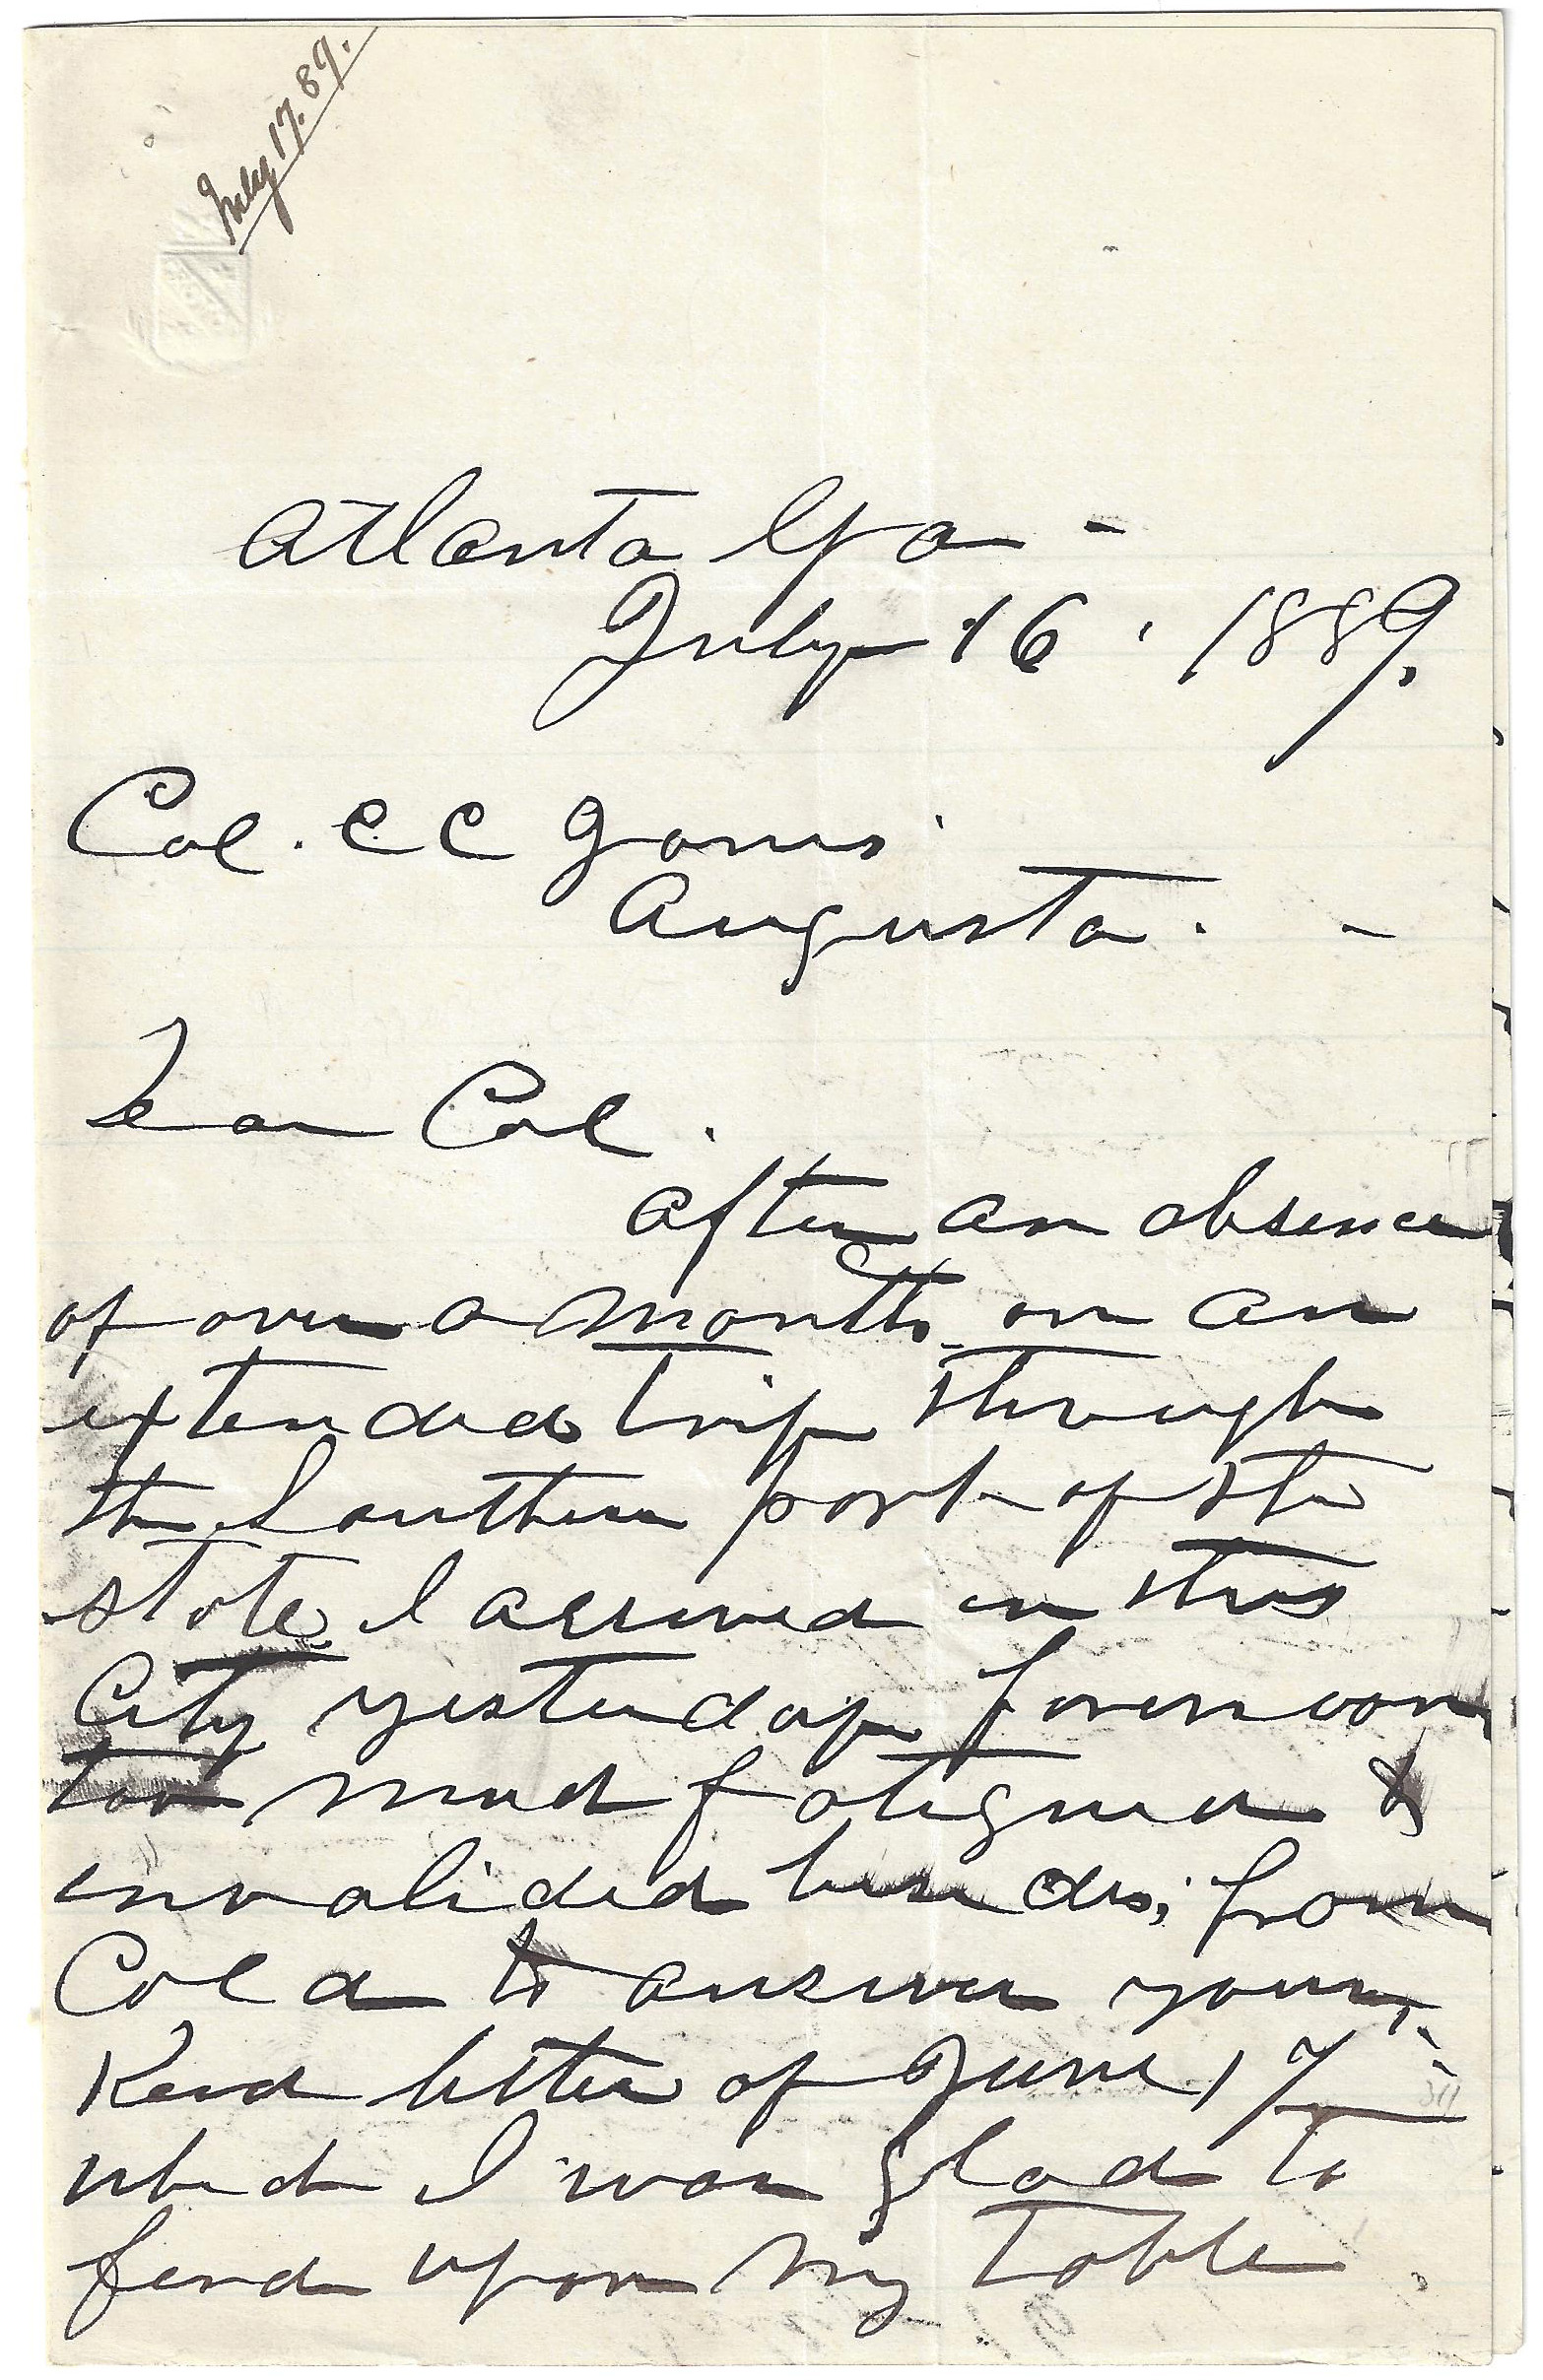 July 17. 89.
Atlanta Ga -
July 16, 1889.
Col. C C Jones
Augusta. -
Dear Col.
After an absence
of over a month on an
extended trip through
the Southern part of the
state I arrived in this
City yesterday forenoon
too much fatigued &
invalided from
Cold to answer your
kind letter of June 17
which I was glad to
find upon my table.